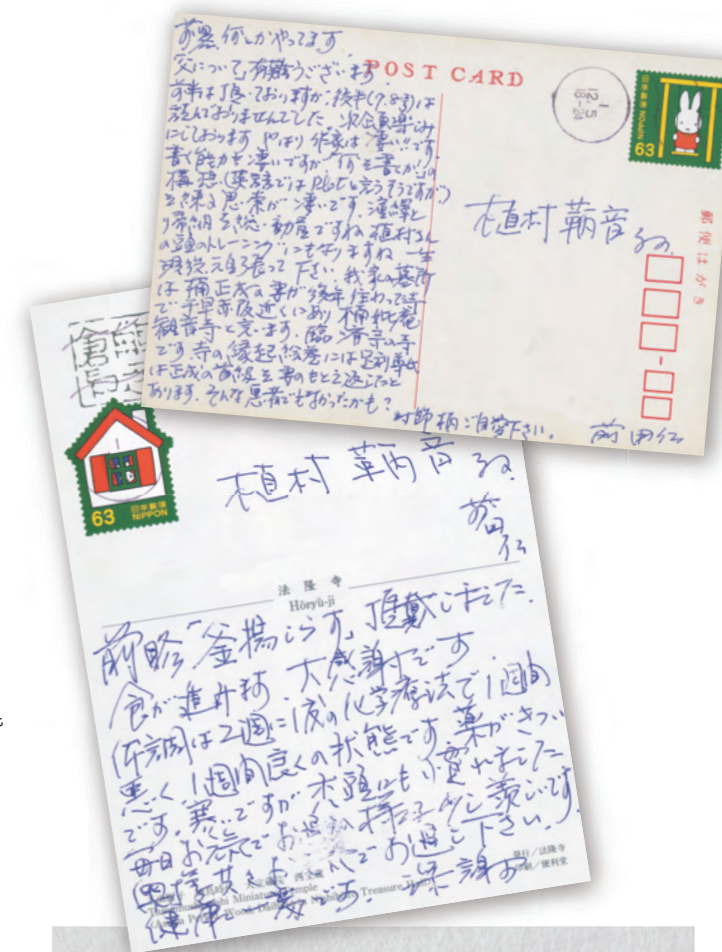 前略 何とかやってます
父について 有難うございます
前半は頂いておりますが、後半(7.8号)は
読んでおりませんでした 次全員楽しみ
にしております やはり作家は凄い!!です
書く能力も凄いですが「何を書くか」の
構想(英語ではPlotと言うそうですが)
を練る思索が凄いです。演繹と
帰納を総動員ですね 植村さん
の頭のトレーニングにもなりますね 一生
現役元気張って下さい 我家の墓所
は楠正成の妻が後年住わって
です千早赤阪近くにあり 楠妣庵
観音寺と言います。臨済宗の寺
です 寺の縁起絵巻には足利尊氏
は正成の首級を妻のもとえ返したと
あります。そんな悪者でもなかったかも?
時節柄ご自愛下さい。 前田仁
POST CARD
12. 1.5
18-24
日本郵便 NIPPON
63
郵便はがき
植村鞆音
63
日本郵便
NIPPON
植村 鞆音
前田
仁
法隆寺
Hōryū-ji
前略「釜揚しらす」頂戴しました。
食が進みます。大感謝です
体調は2週に1度の化学療法で1週間
悪く 1週間良くの状態です 薬がきつい
です。寒いですが 木頭にも慣れました
毎日お元気でお過しの様子 少し羨しいです
奥様共々お お過し下さい。
健康 です。 深謝
Treasure Hall)
発行/法隆寺
印刷/便利堂